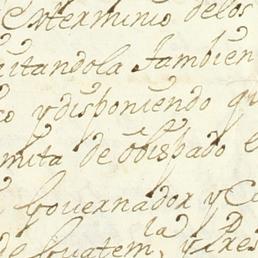 Cnterminio delos
uitandola Jambien
co ydisponiendo qu
mita de obispado e
Governador y C
de Guatem, la y Pres